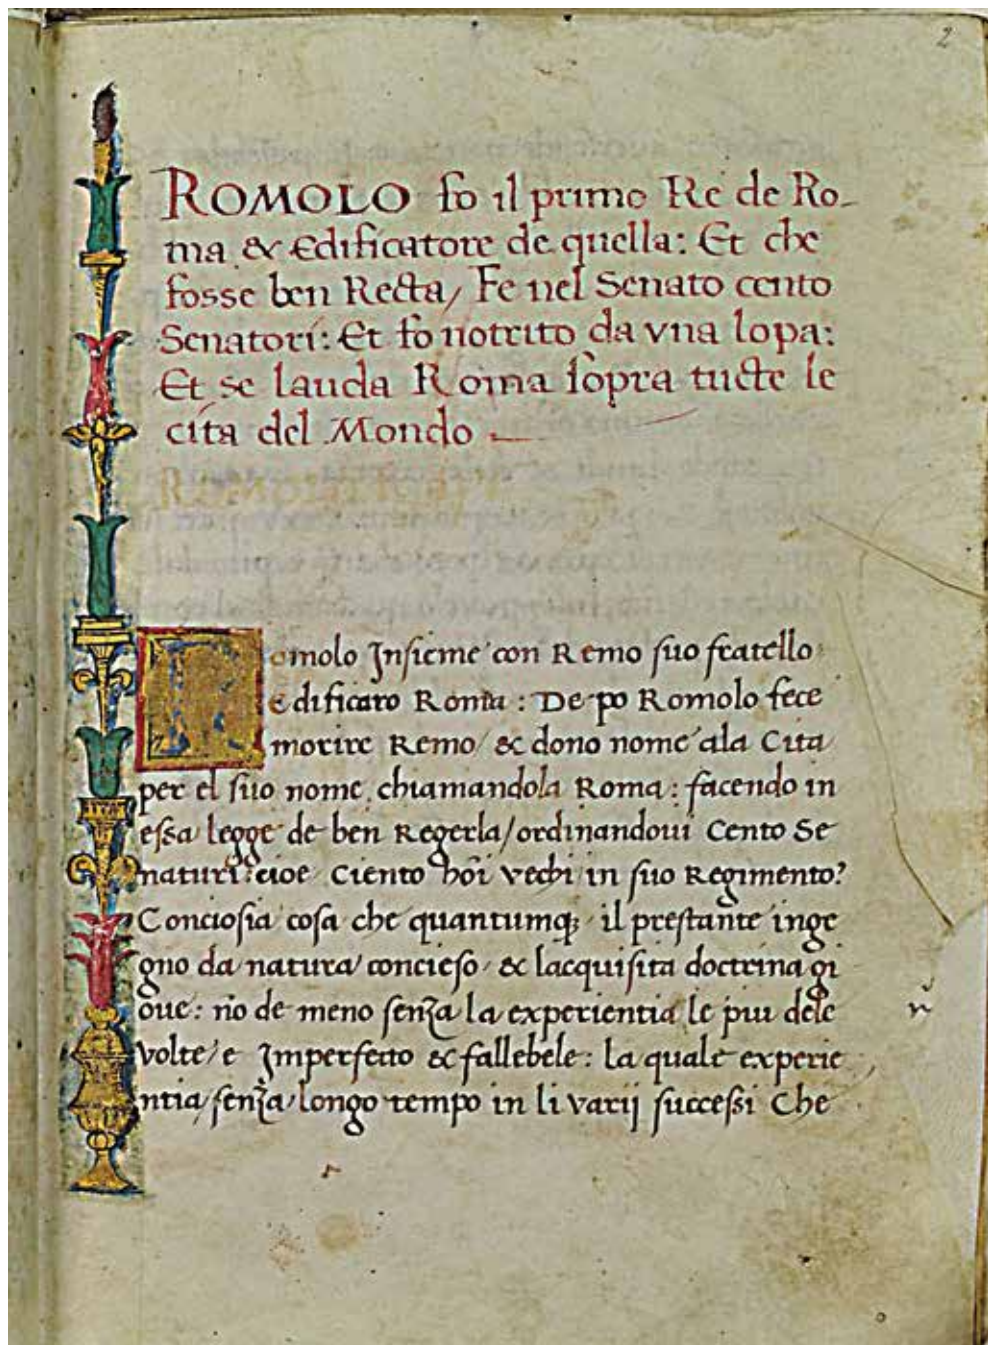 2
ROMOLO fo il primo Re de Ro-
ma & Edificatore de quella: Et che
fosse ben Recta/ Fe nel Senato cento
Senatori: Et fo notrito da vna lopa:
Et se lauda Roma sopra tucte le
cita del Mondo
Romolo Insieme con Remo suo fratello
edificaro Roma: De po Romolo fece
morire Remo/ & dono nome ala Cita
per el suo nome, chiamandola Roma: facendo in
essa legge de ben Regerla/ordinandoui Cento Se
naturi: cioe Ciento hōi vechi in suo Regimento?
Conciosia cosa che quantumqꝫ il prestante inge
gno da natura concieso/ & lacquisita doctrina gi
oue: nō de meno senza la experientia le piu dele
volte/ e Imperfecto & fallebele: la quale experie
ntia/senza/longo tempo in li varij successi Che